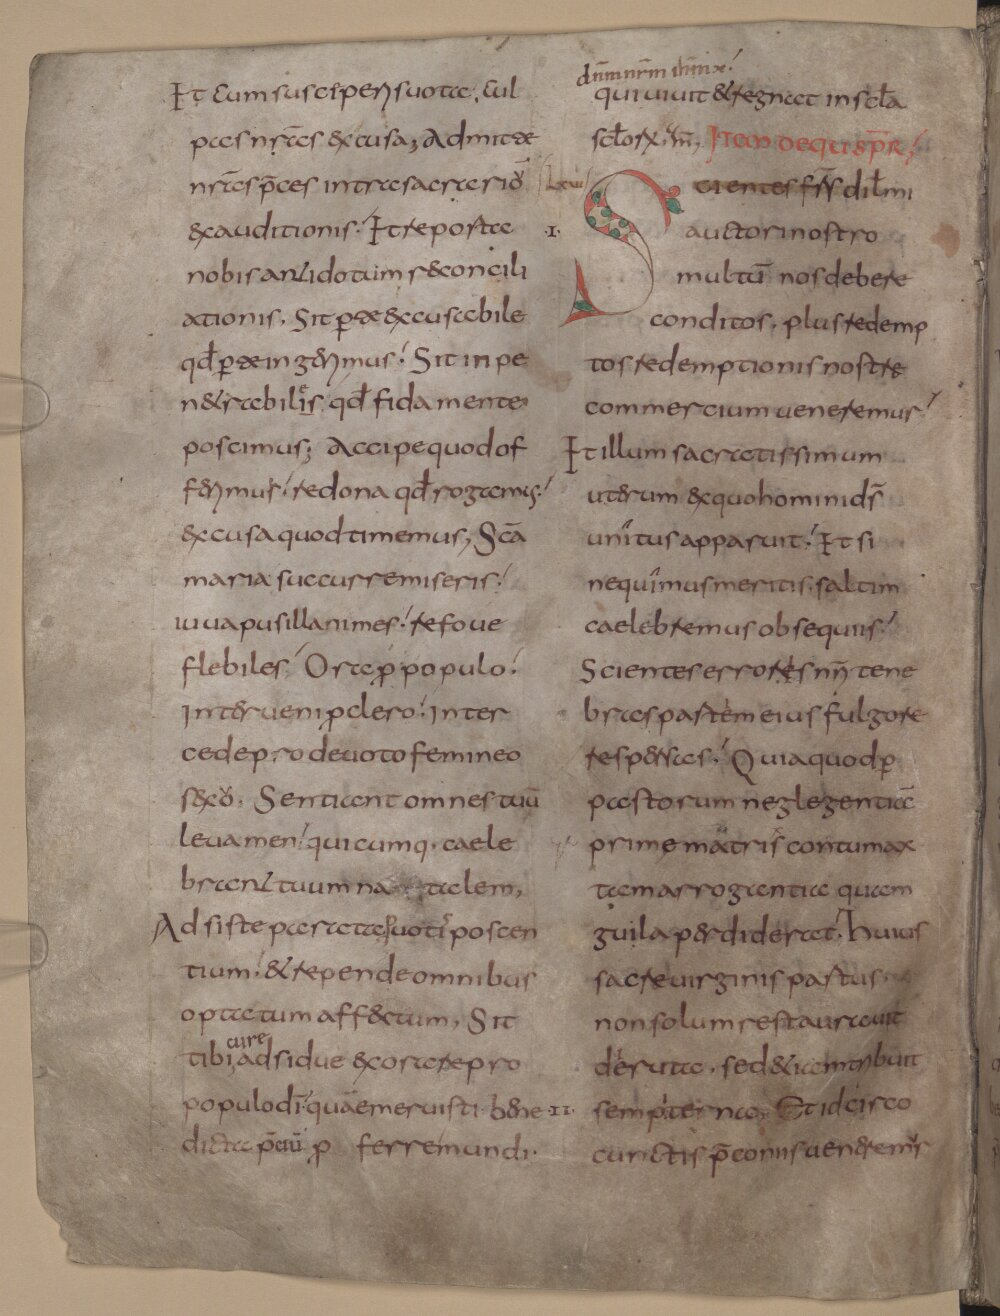 Et cum susciperis uota, cul
pas nr̄as excusa, Admitte
nr̄as p̄ces intra sacrariū
exauditionis. Et reposta
nobis antidotum reconcili
ationis. Sit p̲ te excusabile
qd̄ p̲ te ingerimus. Sit inpe
netrabilis qd̄ fida mente
poscimus; Accipe quod of
ferimus. redona qd̄ rogamus.
excusa quod timemus, Sc̄a
maria succurre miseris.
iuua pusillanimes. refoue
flebiles. Ora p̲ populo.
interueni p̲ clero. inter
cede pro deuoto femineo
sexū. Sentiant omnes tuū
leuamen. quicumq. caele
brant tuum na talem,
Adsiste parata uotis poscen
tium. & repende omnibus
optatum affectum, Sit
cure
tibi, adsidue exorare pro
populo dī. quae meruisti bene
dicta p̄ciū p̲ ferre mundi.
dn̄m nr̄m ihm̄ xp̄.
qui uiuit & regnat in scl̄a
scl̄orx. m̄, Item de qua sp̄r.
lxui
Scientes fr̄s̄ dil̄mi
I. auctori nostro
multū nos debere
conditos. plus redemp
tos redemptionis nostre
commercium ueneremus.
Et illum sacratissimum
uterum ex quo homini ds̄
unitus apparuit. Et si
nequimus meritis. saltim
caelebremus obsequiis.
Scientes errores nr̄i tene
bras partem eius fulgore
respersas. Quia quod p̲
pastorum neglegentia
prime matris contumax
tam arrogantia quam
guila perdiderat. huius
sacre uirginis partus.
non solum restaurauit
deruta. sed & iam tribuit
II. sempiterna, Et idcirco
cunctis p̄coniis ueneremur